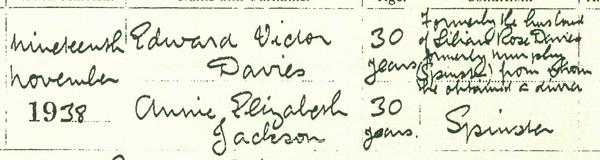 nineteenth
november
1938
Edward Victor
Davies
30
years
Formerly the husband
of Lilian Rose Davies
formerly Murphy
(Spinster) from whom
he obtained a divorce
Annie Elizabeth
Jackson
30
years.
Spinster